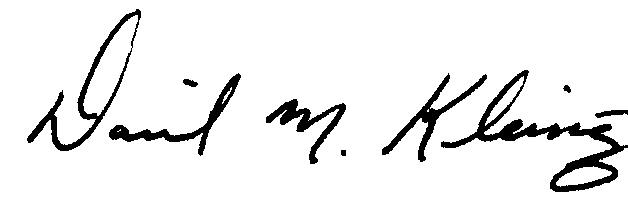 David M. Kleinz